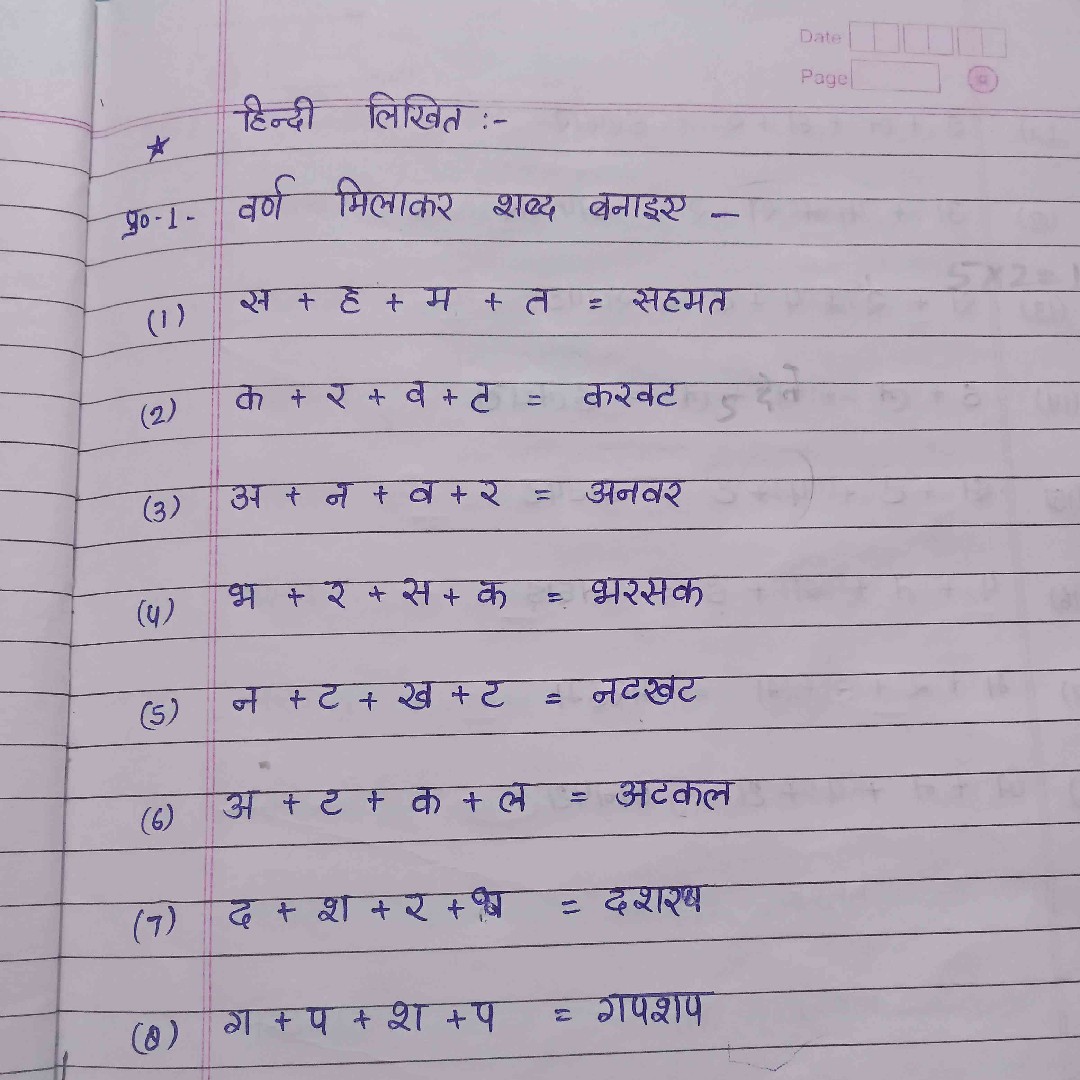 Date
Page
हिन्दी लिखित :-
★
प्र०-1- वर्ण मिलाकर शब्द बनाइए –
(1) स + ह + म + त = सहमत
(2) क + र + व + ट = करवट
(3) अ + न + व + र = अनवर
(4) भ + र + स + क = भरसक
(5) न + ट + ख + ट = नटखट
(6) अ + ट + क + ल = अटकल
(7) द + श + र + थ = दशरथ
(8) ग + प + श + प = गपशप